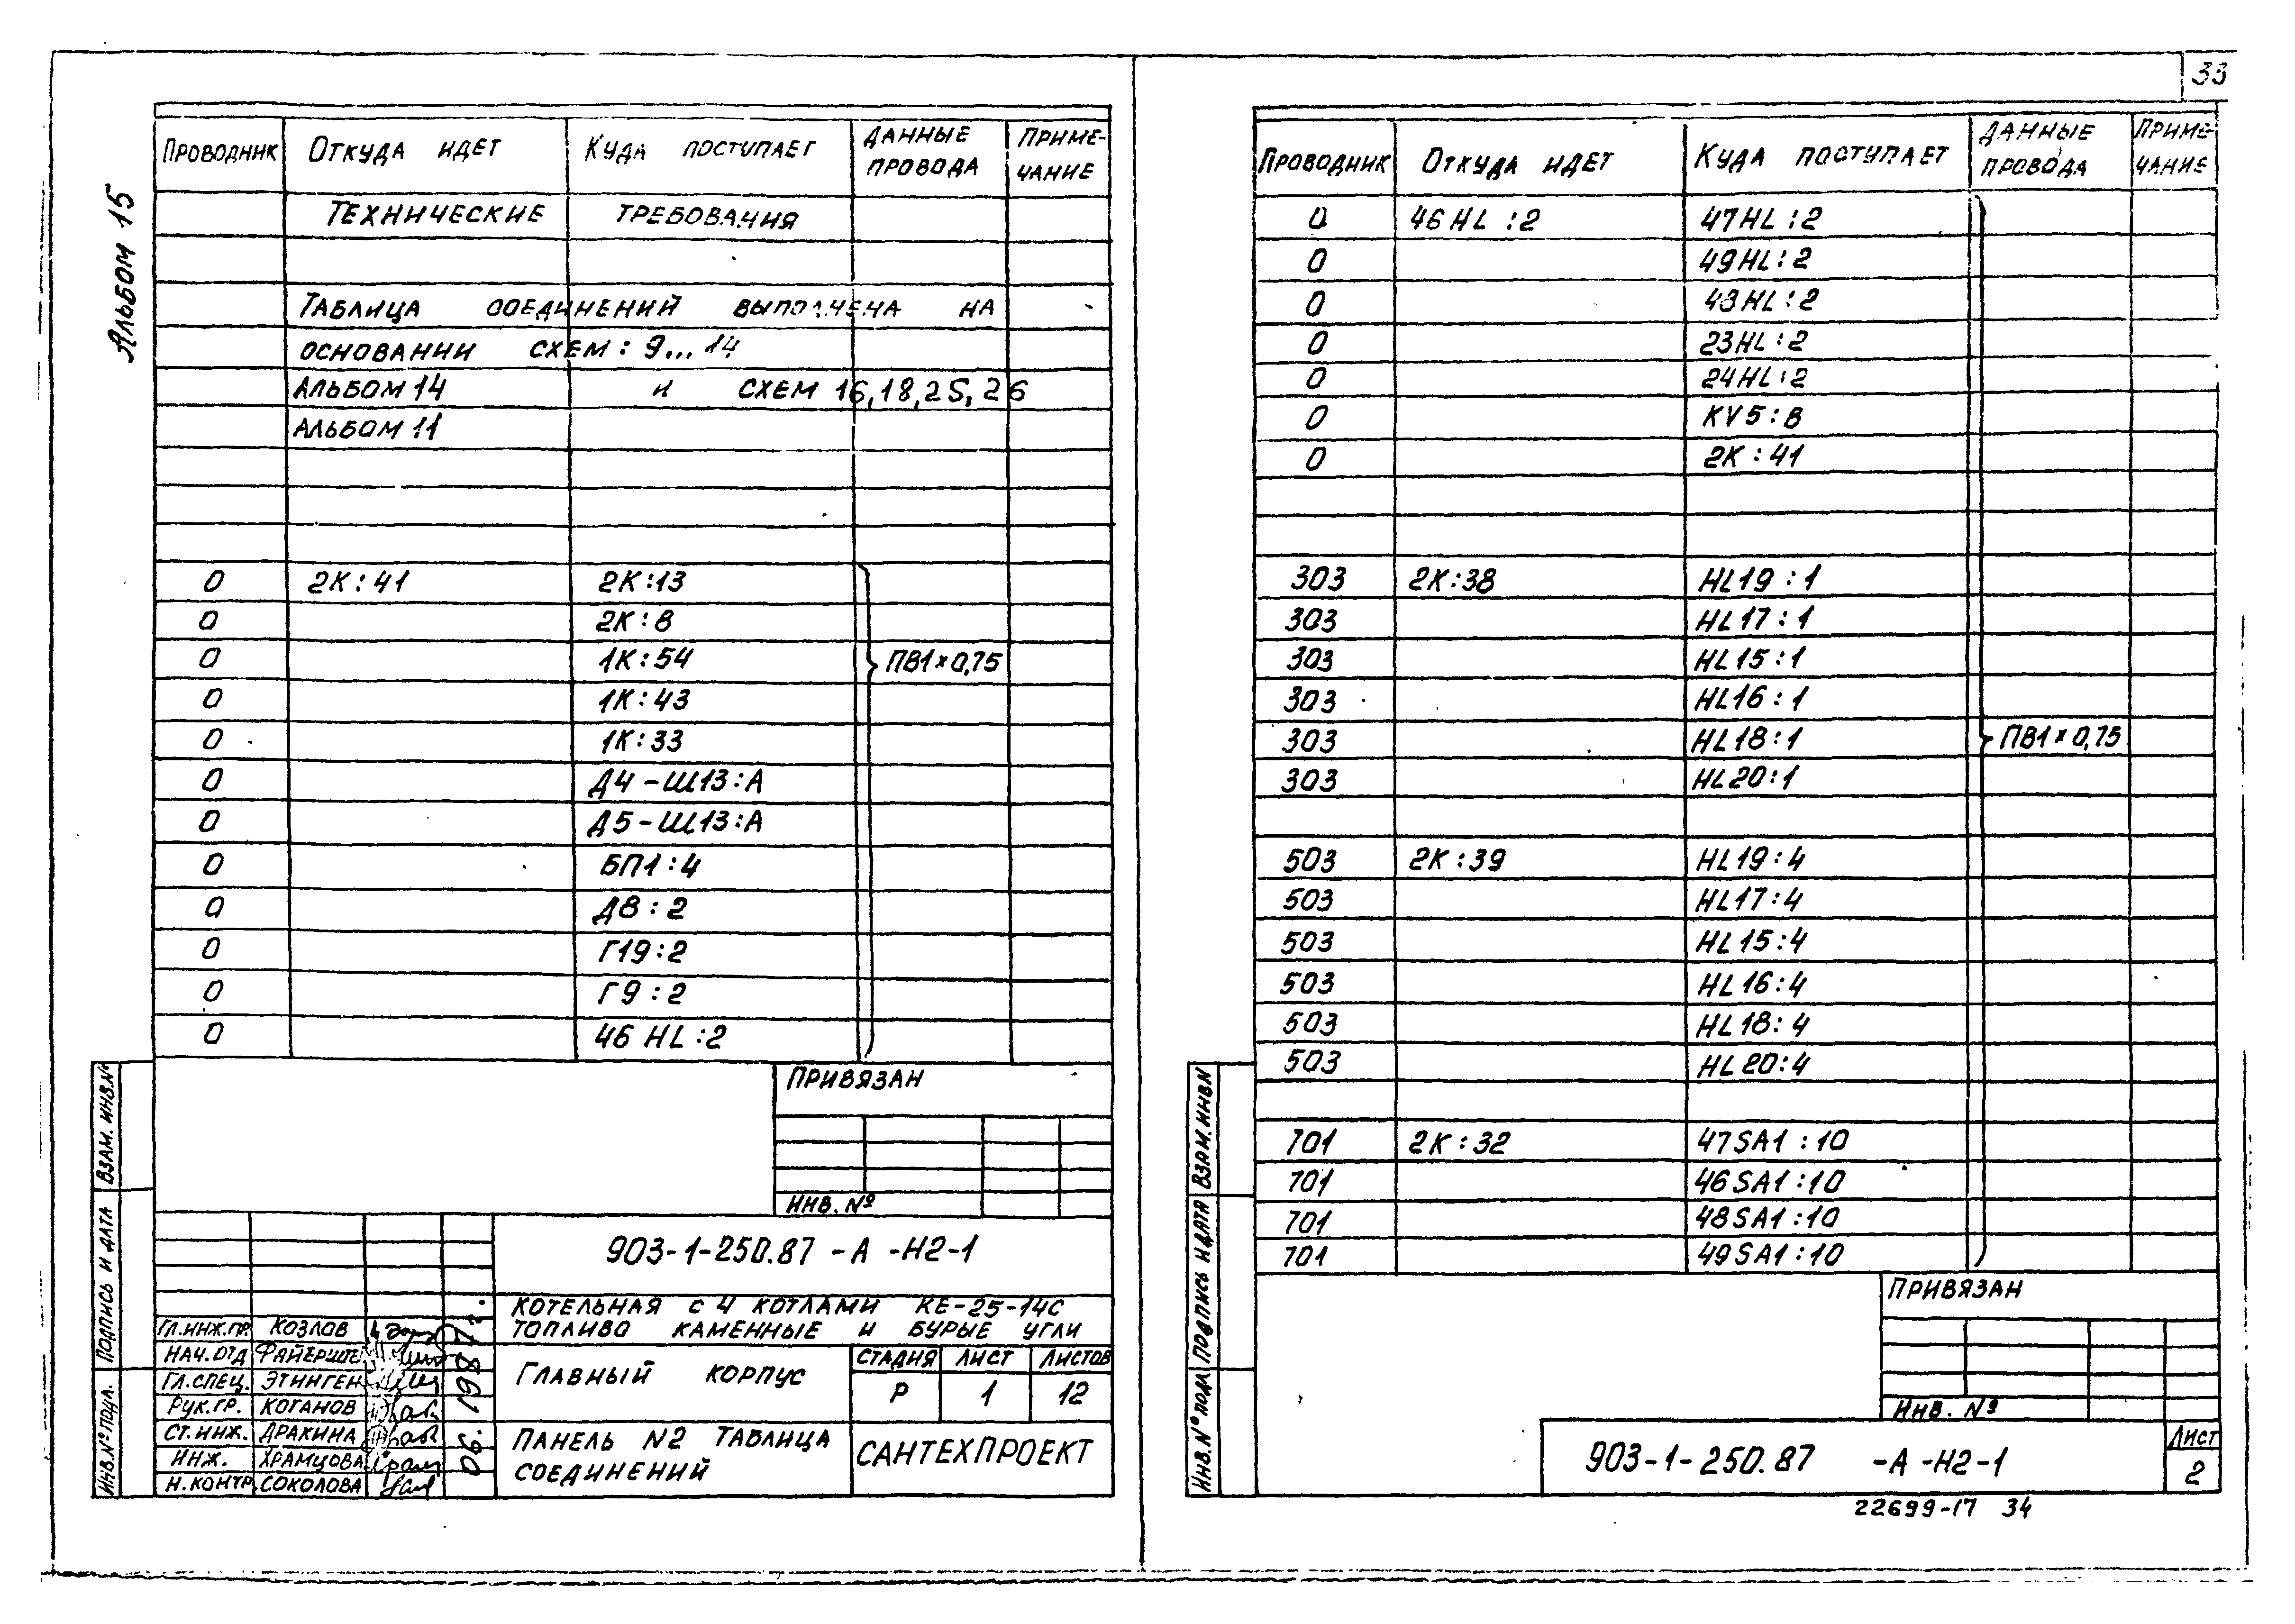 33
Альбом 15
Проводник Откуда идет Куда поступает Данные провода Приме-чание
Технические требования
Таблица соединений выполнена на
основании схем: 9...14
Альбом 14 и схем 16,18,25,26
Альбом 11
0 2К:41 2К:13
0 2К:8
0 1К:54 ПВ1×0,75
0 1К:43
0 1К:33
0 Д4-Ш13:А
0 Д5-Ш13:А
0 БП1:4
0 Д8:2
0 Г19:2
0 Г9:2
0 46HL:2
Привязан
Инв. №
903-1-250.87 -А -Н2-1
Котельная с 4 котлами КЕ-25-14С
Топливо каменные и бурые угли
Гл.инж.пр. Козлов
Нач.отд Файерште
Гл.спец. Этинген
Рук.гр. Коганов
Ст.инж. Дракина
Инж. Храмцова
Н.контр. Соколова
06.1987г.
Главный корпус
Стадия Лист Листов
Р 1 12
Панель N2 Таблица
соединений
Сантехпроект
Взам. инв.№
Подпись и дата
Инв.№ подл.
Проводник Откуда идет Куда поступает Данные провода Приме-чание
0 46HL:2 47HL:2
0 49HL:2
0 48HL:2
0 23HL:2
0 24HL:2
0 KV5:В
0 2К:41
303 2К:38 HL19:1
303 HL17:1
303 HL15:1
303 HL16:1
303 HL18:1 ПВ1×0,75
303 HL20:1
503 2К:39 HL19:4
503 HL17:4
503 HL15:4
503 HL16:4
503 HL18:4
503 HL20:4
701 2К:32 47SA1:10
701 46SA1:10
701 48SA1:10
701 49SA1:10
Привязан
Инв. №
903-1-250.87 -А -Н2-1
Лист
2
Взам.инв.N
Подпись и дата
Инв.№ подл
22699-17 34